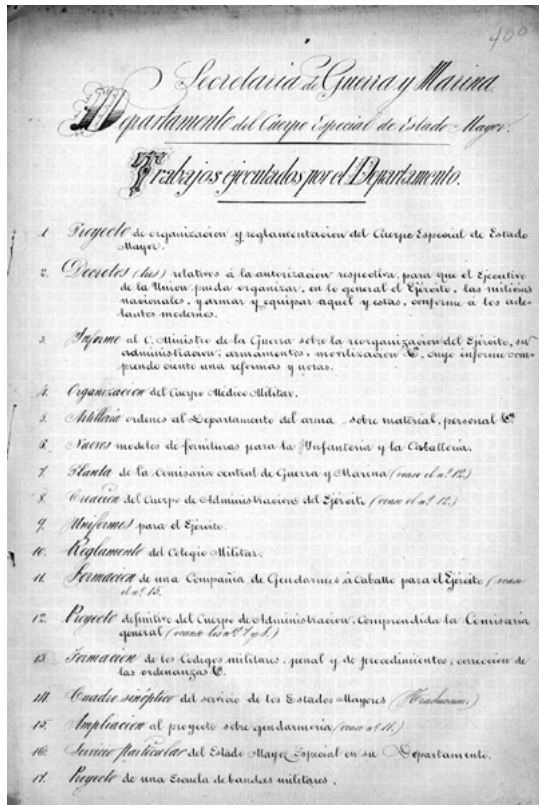 400
Secretaria de Guerra y Marina.
Departamento del Cuerpo Especial de Estado Mayor.
Trabajos ejecutados por el Departamento.
1. Proyecto de organizacion y reglamentacion del Cuerpo Especial de Estado
Mayor.
2. Decretos (tres) relativos á la autorizacion respectiva, para que el Ejecutivo
de la Union pueda organizar, en lo general el Ejército, las milicias
nacionales, y armar y equipar aquel y estas, conforme á los ade-
lantos modernos.
3. Informe al C. Ministro de la Guerra sobre la reorganizacion del Ejército, su
administracion, armamentos, movilizacion &ª, cuyo informe com-
prende ciento una reformas y notas.
4. Organizacion del Cuerpo Médico Militar.
5. Artilleria ordenes al Departamento del arma sobre material, personal &ª
6. Nuevos modelos de fornituras para la Ynfanteria y la Caballeria.
7. Planta de la Comisaria central de Guerra y Marina (vease el nº 12.)
8. Creacion del Cuerpo de Administracion del Ejército (vease el nº 12.)
9. Uniformes para el Ejército.
10. Reglamento del Colegio Militar.
11. Formacion de una Compañia de Gendarmes á Caballo para el Ejército (vease
el nº 15.
12. Proyecto definitivo del Cuerpo de Administracion, Comprendida la Comisaria
general (veanse los nºs 7 y 8.)
13. Formacion de los Codigos militares, penal y de procedimientos; correccion de
las ordenanzas &ª.
14. Cuadro sinóptico del servicio de los Estados Mayores
15. Ampliacion al proyecto sobre gendarmeria (vease nº 11.)
16. Servicio particular del Estado Mayor Especial en su Departamento.
17. Proyecto de una Escuela de bandas militares.